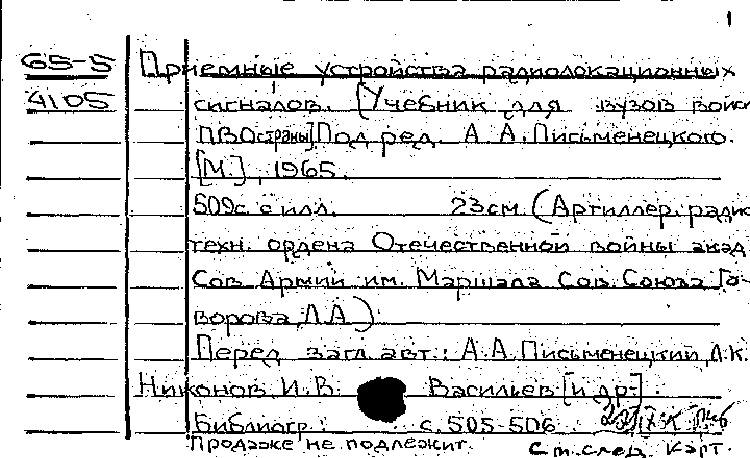 1
65-5 Приемные устройства радиолокационных
4105 сигналов. [Учебник для вузов войск
ПВО страны] Под ред. А. А. Письменецкого.
[М.], 1965.
509с. с илл. 23см. (Артиллер. радио
техн. ордена Отечественной войны акад.
Сов. Армии им. Маршала Сов. Союза Го-
ворова Л.А.)
Перед загл. авт.: А.А. Письменецкий, Л.К.
Никонов, И.В. Васильев [и др.]
Библиогр.: с. 505-506.
Продаже не подлежит. См. след. карт.